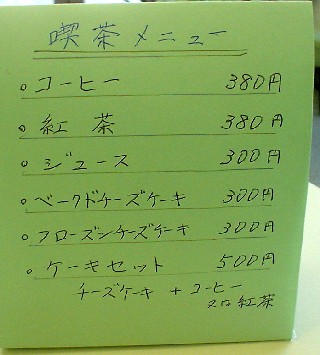 喫茶メニュー
○ コーヒー 380円
○ 紅茶 380円
○ ジュース 300円
○ ベークドチーズケーキ 300円
○ フローズンチーズケーキ 300円
○ ケーキセット 500円
チーズケーキ + コーヒー
又は紅茶